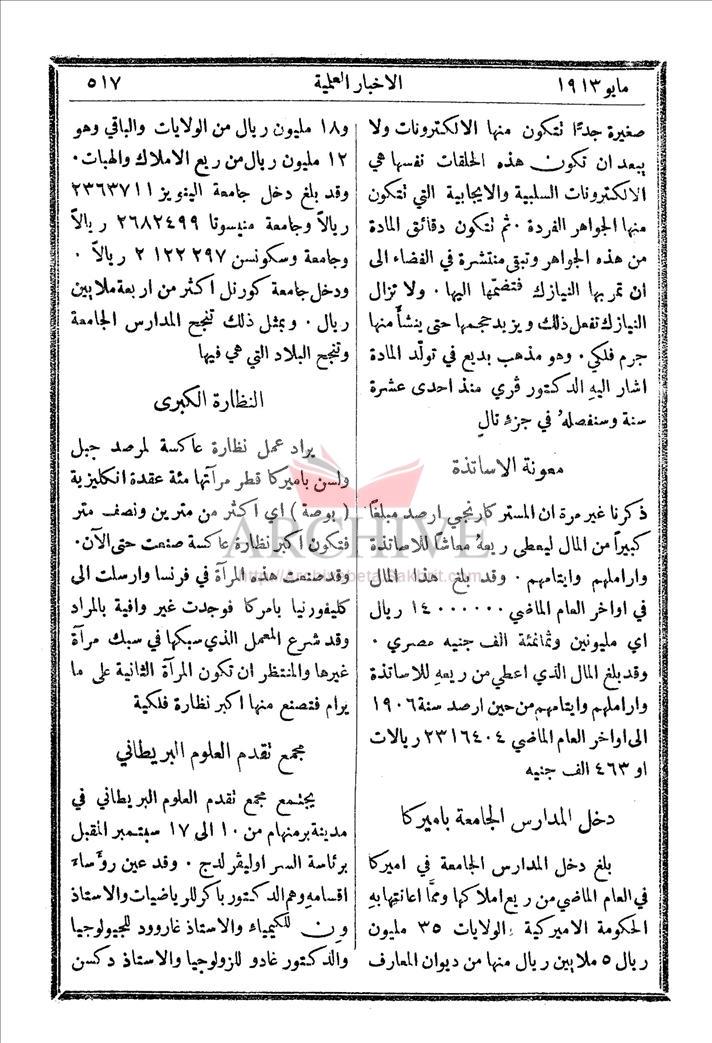 مايو ١٩١٣
الاخبار العلمية
٥١٧
صغيرة جدًا تتكون منها الالكترونات ولا
يبعد ان تكون هذه الحلقات نفسها هي
الالكترونات السلبية والايجابية التي تتكون
منها الجواهر الفردة . ثم تتكون دقائق المادة
من هذه الجواهر وتبقى منتشرة في الفضاء الى
ان تمر بها النيازك فتضمّها اليها . ولا تزال
النيازك تفعل ذلك ويزيد حجمها حتى ينشأ منها
جرم فلكي . وهو مذهب بديع في تولّد المادة
اشار اليهِ الدكتور ڤري منذ احدى عشرة
سنة وسنفصلهُ في جزءٍ تالٍ
معونة الاساتذة
ذكرنا غير مرة ان المستر كارنجي ارصد مبلغًا
كبيرًا من المال ليعطى ريعهُ معاشًا للاساتذة
واراملهم وايتامهم . وقد بلغ هذا المال
في اواخر العام الماضي ١٤٠٠٠٠٠٠ ريال
اي مليونين وثمانمئة الف جنيه مصري .
وقد بلغ المال الذي اعطي من ريعهِ للاساتذة
واراملهم وايتامهم من حين ارصد سنة ١٩٠٦
الى اواخر العام الماضي ٢٣١٦٤٠٤ ريالات
او ٤٦٣ الف جنيه
دخل المدارس الجامعة باميركا
بلغ دخل المدارس الجامعة في اميركا
في العام الماضي من ريع املاكها ومما اعانتها بهِ
الحكومة الاميركية والولايات ٣٥ مليون
ريال ٥ ملايين ريال منها من ديوان المعارف
و١٨ مليون ريال من الولايات والباقي وهو
١٢ مليون ريال من ريع الاملاك والهبات .
وقد بلغ دخل جامعة الينويز ٢٣٦٣٧١١
ريالاً وجامعة منيسوتا ٢٦٨٢٤٩٩ ريالاً
وجامعة وسكونسن ٢١٢٢٢٩٧ ريالاً .
ودخل جامعة كورنل اكثر من اربعة ملايين
ريال . وبمثل ذلك تنجح المدارس الجامعة
وتنجح البلاد التي هي فيها
النظارة الكبرى
يراد عمل نظارة عاكسة لمرصد جبل
ولسن باميركا قطر مرآتها مئة عقدة انكليزية
( بوصة ) اي اكثر من مترين ونصف متر
فتكون اكبر نظارة عاكسة صنعت حتى الآن .
وقد صنعت هذه المرآة في فرنسا وارسلت الى
كليفورنيا بامركا فوجدت غير وافية بالمراد
وقد شرع المعمل الذي سبكها في سبك مرآة
غيرها والمنتظر ان تكون المرآة الثانية على ما
يرام فتصنع منها اكبر نظارة فلكية
مجمع تقدم العلوم البريطاني
يجتمع مجمع تقدم العلوم البريطاني في
مدينة برمنهام من ١٠ الى ١٧ سبتمبر المقبل
برئاسة السر اوليڤر لدج . وقد عين رؤساء
اقسامهِ وهم الدكتور باكر للرياضيات والاستاذ
ون للكيمياء والاستاذ غاروود للجيولوجيا
والدكتور غادو للزولوجيا والاستاذ دكسن
ARCHIVE